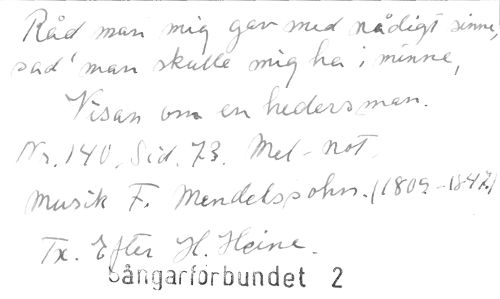 Råd man mig gav med nådigt sinne,
sad' man skulle mig ha i minne,
Visan om en hedersman.
Nr. 140. Sid. 73. Mel-not.
Musik F. Mendelssohn. (1809-1847)
Tx. Efter H. Heine.
Sångarförbundet 2